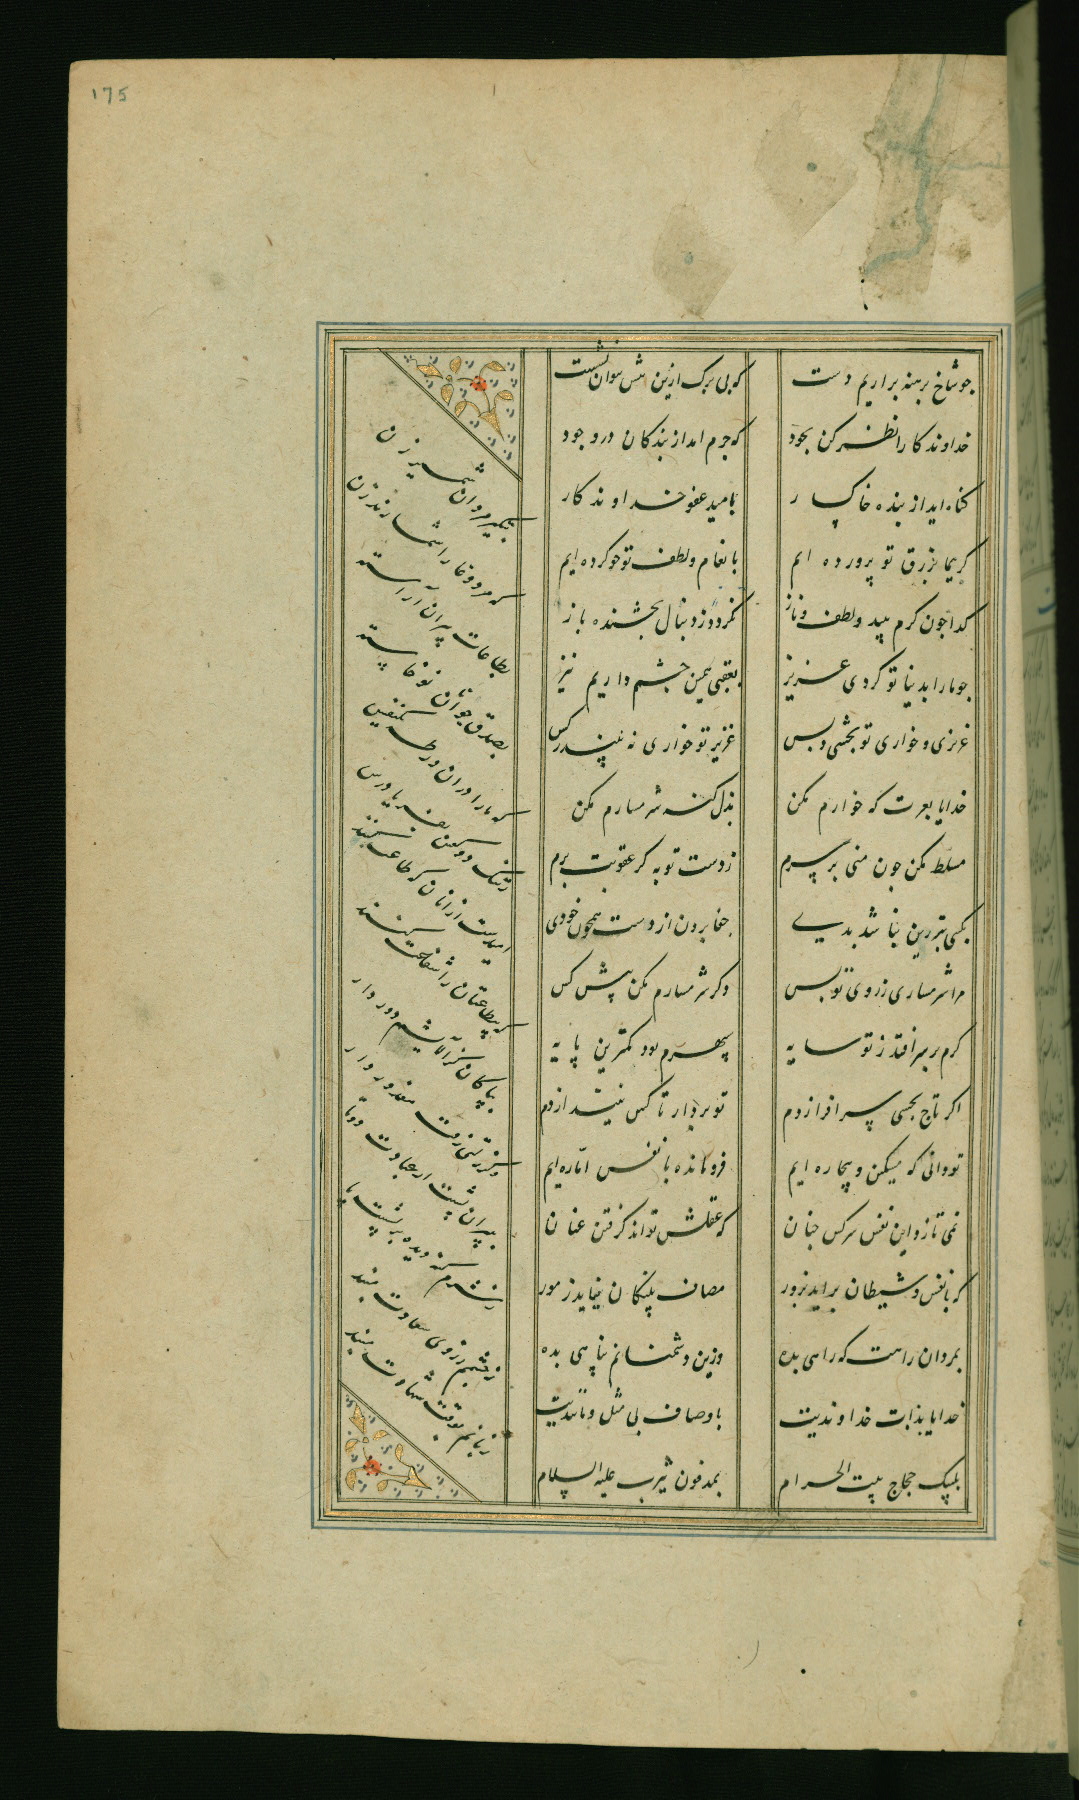 175
چو شاخ برهنه براریم دست
که بی برک ازین بیش نتوان نشست
خداوندکارا نظر کن بجود
که جرم امد از بندکان در وجود
کناه اید از بنده خاکسار
بامید عفو خداوندکار
کریما برزق تو پرورده ایم
بانعام و لطف تو خو کرده ایم
کدا چون کرم بیند و لطف و ناز
نکردد ز دنبال بخشنده باز
چو ما را بدنیا تو کردی عزیز
بعقبی همین چشم داریم نیز
عزیزی و خواری تو بخشی و بس
عزیز تو خواری نه بیند ز کس
خدایا بعزت که خوارم مکن
بذل کنه شرمسارم مکن
مسلط مکن چون منی بر سرم
ز دست تو به کر عقوبت برم
بکیتی بتر زین نباشد بدی
جفا بردن از دست همچون خودی
مرا شرمساری ز روی تو بس
دکر شرمسارم مکن پیش کس
کرم بر سر افتد ز تو سایه
سپهرم بود کمترین پایه
اکر تاج بخشی سر افرازدم
تو بردار تا کس نیندازدم
تو دانی که مسکین و بیچاره ایم
فرو مانده با نفس اماره ایم
نمی تازد این نفس سرکش چنان
که عقلش تواند کرفتن عنان
که با نفس و شیطان براید بزور
مصاف پلنکان نیاید ز مور
بمردان راهت که راهی بده
وزین دشمنانم پناهی بده
خدایا بذات خداوندیت
باوصاف بی مثل و مانندیت
بلبیک حجاج بیت الحرام
بمدفون یثرب علیه السلام
بتکبیر مردان شمشیر زن
که مرد وغا را شمارند زن
بطاعات پیران آراسته
بصدق جوانان نوخاسته
که ما را دران ورطه یکنفس
ز ننک دو کفتن بفریاد رس
امیدست ازانان که طاعت کنند
که بیطاعتان را شفاعت کنند
بپاکان کز آلایشم دور دار
وکر زلتی رفت معذور دار
بپیران پشت از عبادت دوتا
ز شرم کنه دیده بر پشت پا
که چشمم ز روی سعادت مبند
زبانم بوقت شهادت مبند